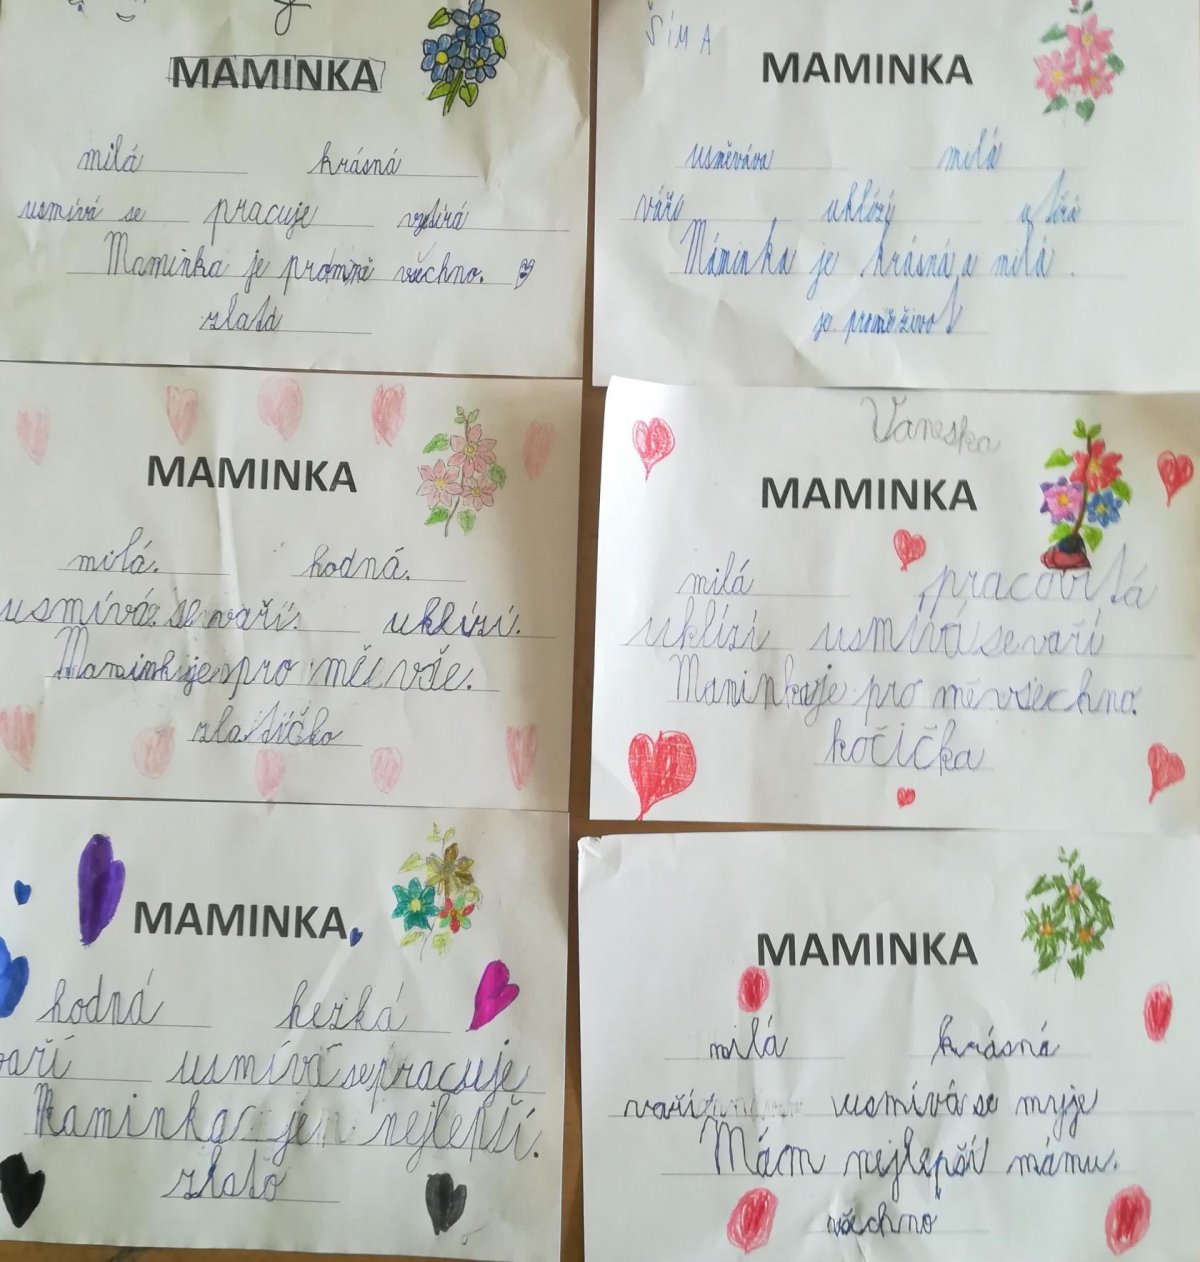 MAMINKA
milá krásná
usmívá se pracuje vytírá
Maminka je promně všechno.
zlato
ŠÍMA
MAMINKA
usměváva milá
váří uklízý utírá
Máminka je krásná a milá.
je proměživot
MAMINKA
milá. hodná.
usmívá se vaří. uklízí.
Maminkaje pro mě vše.
zlatíčko
Vaneska
MAMINKA
milá pracovitá
uklízí usmívá se vaří
Maminkaje pro mě všechno.
kočička
MAMINKA
hodná hezká
vaří usmívá se pracuje
Maminka je nejlepší.
zlato
MAMINKA
milá krásná
vaří usmívá se myje
Mám nejlepší mámu.
všechno